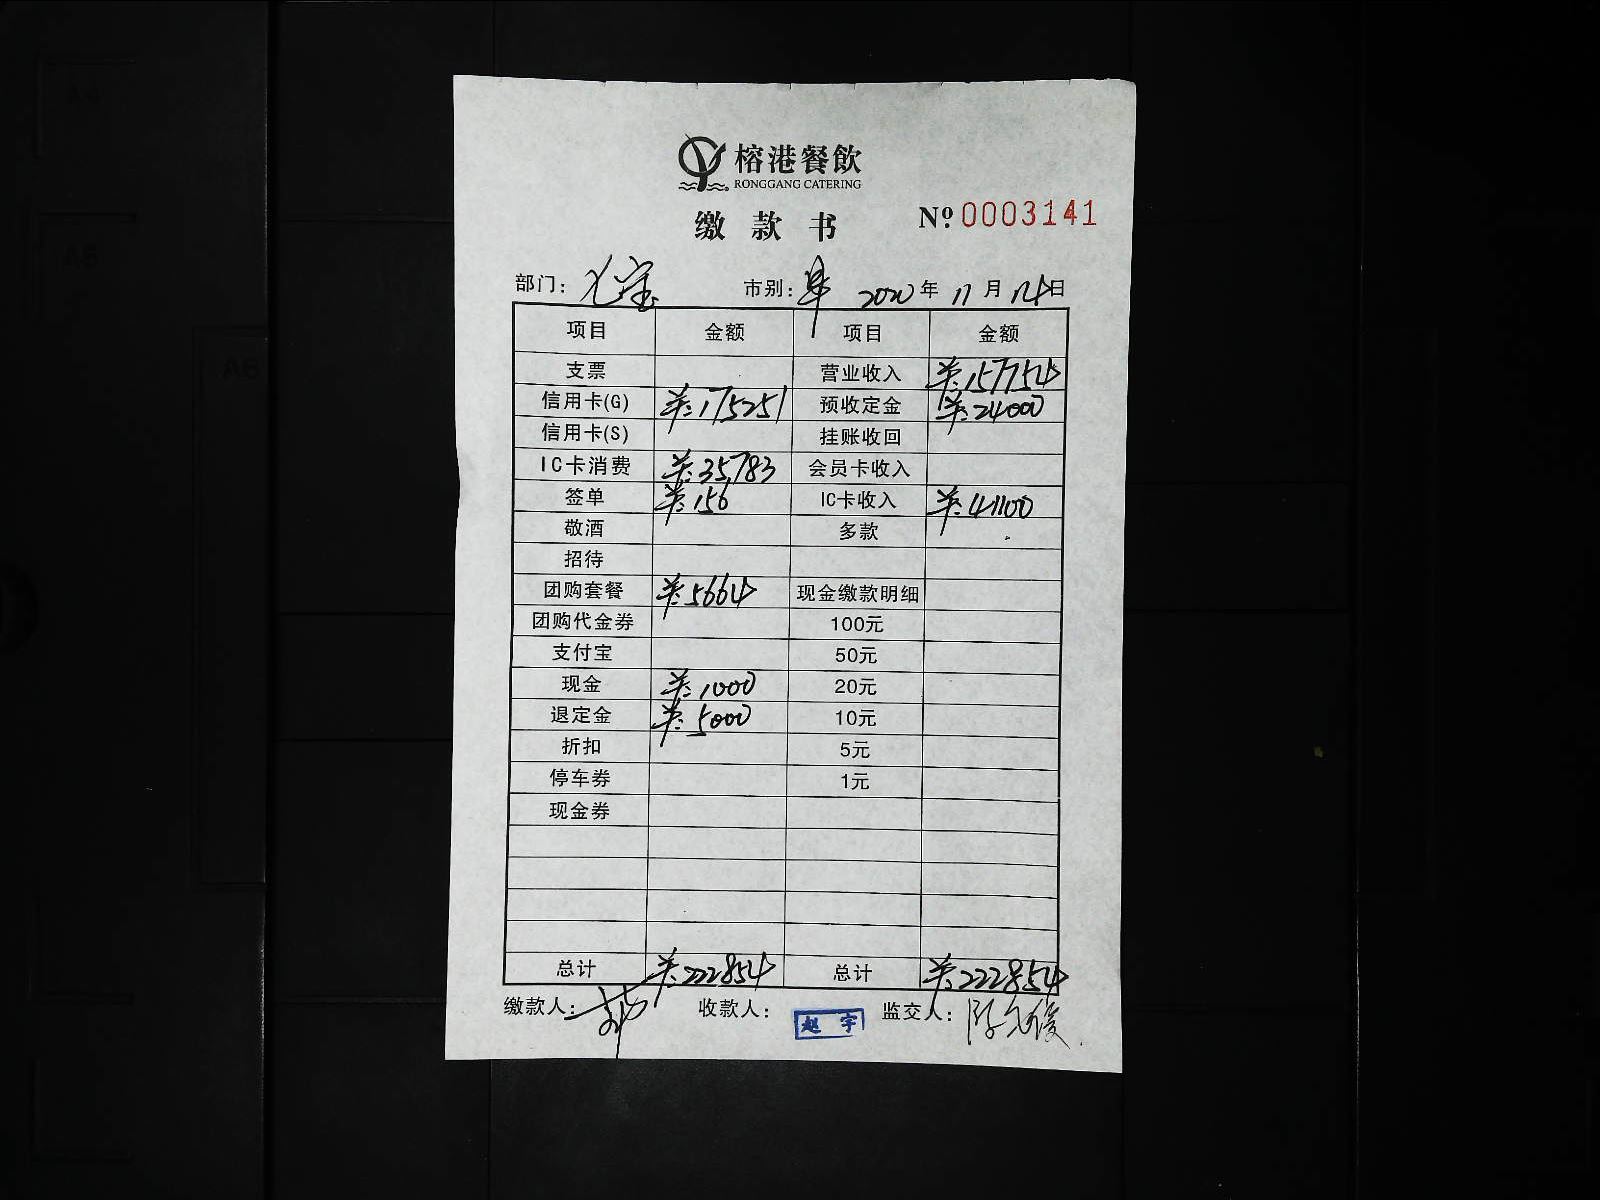 榕港餐飲
RONGGANG CATERING
缴款书
№ 0003141
部门： 市别： 2020年11月14日
项目 金额 项目 金额
支票 营业收入 ¥:157754
信用卡(G) ¥:175251 预收定金 ¥:24000
信用卡(S) 挂账收回
IC卡消费 ¥:35783 会员卡收入
签单 ¥:156 IC卡收入 ¥:41100
敬酒 多款
招待
团购套餐 ¥:5664 现金缴款明细
团购代金券 100元
支付宝 50元
现金 ¥:1000 20元
退定金 ¥:5000 10元
折扣 5元
停车券 1元
现金券
总计 ¥:222854 总计 ¥:222854
缴款人： 收款人： 赵宇 监交人：